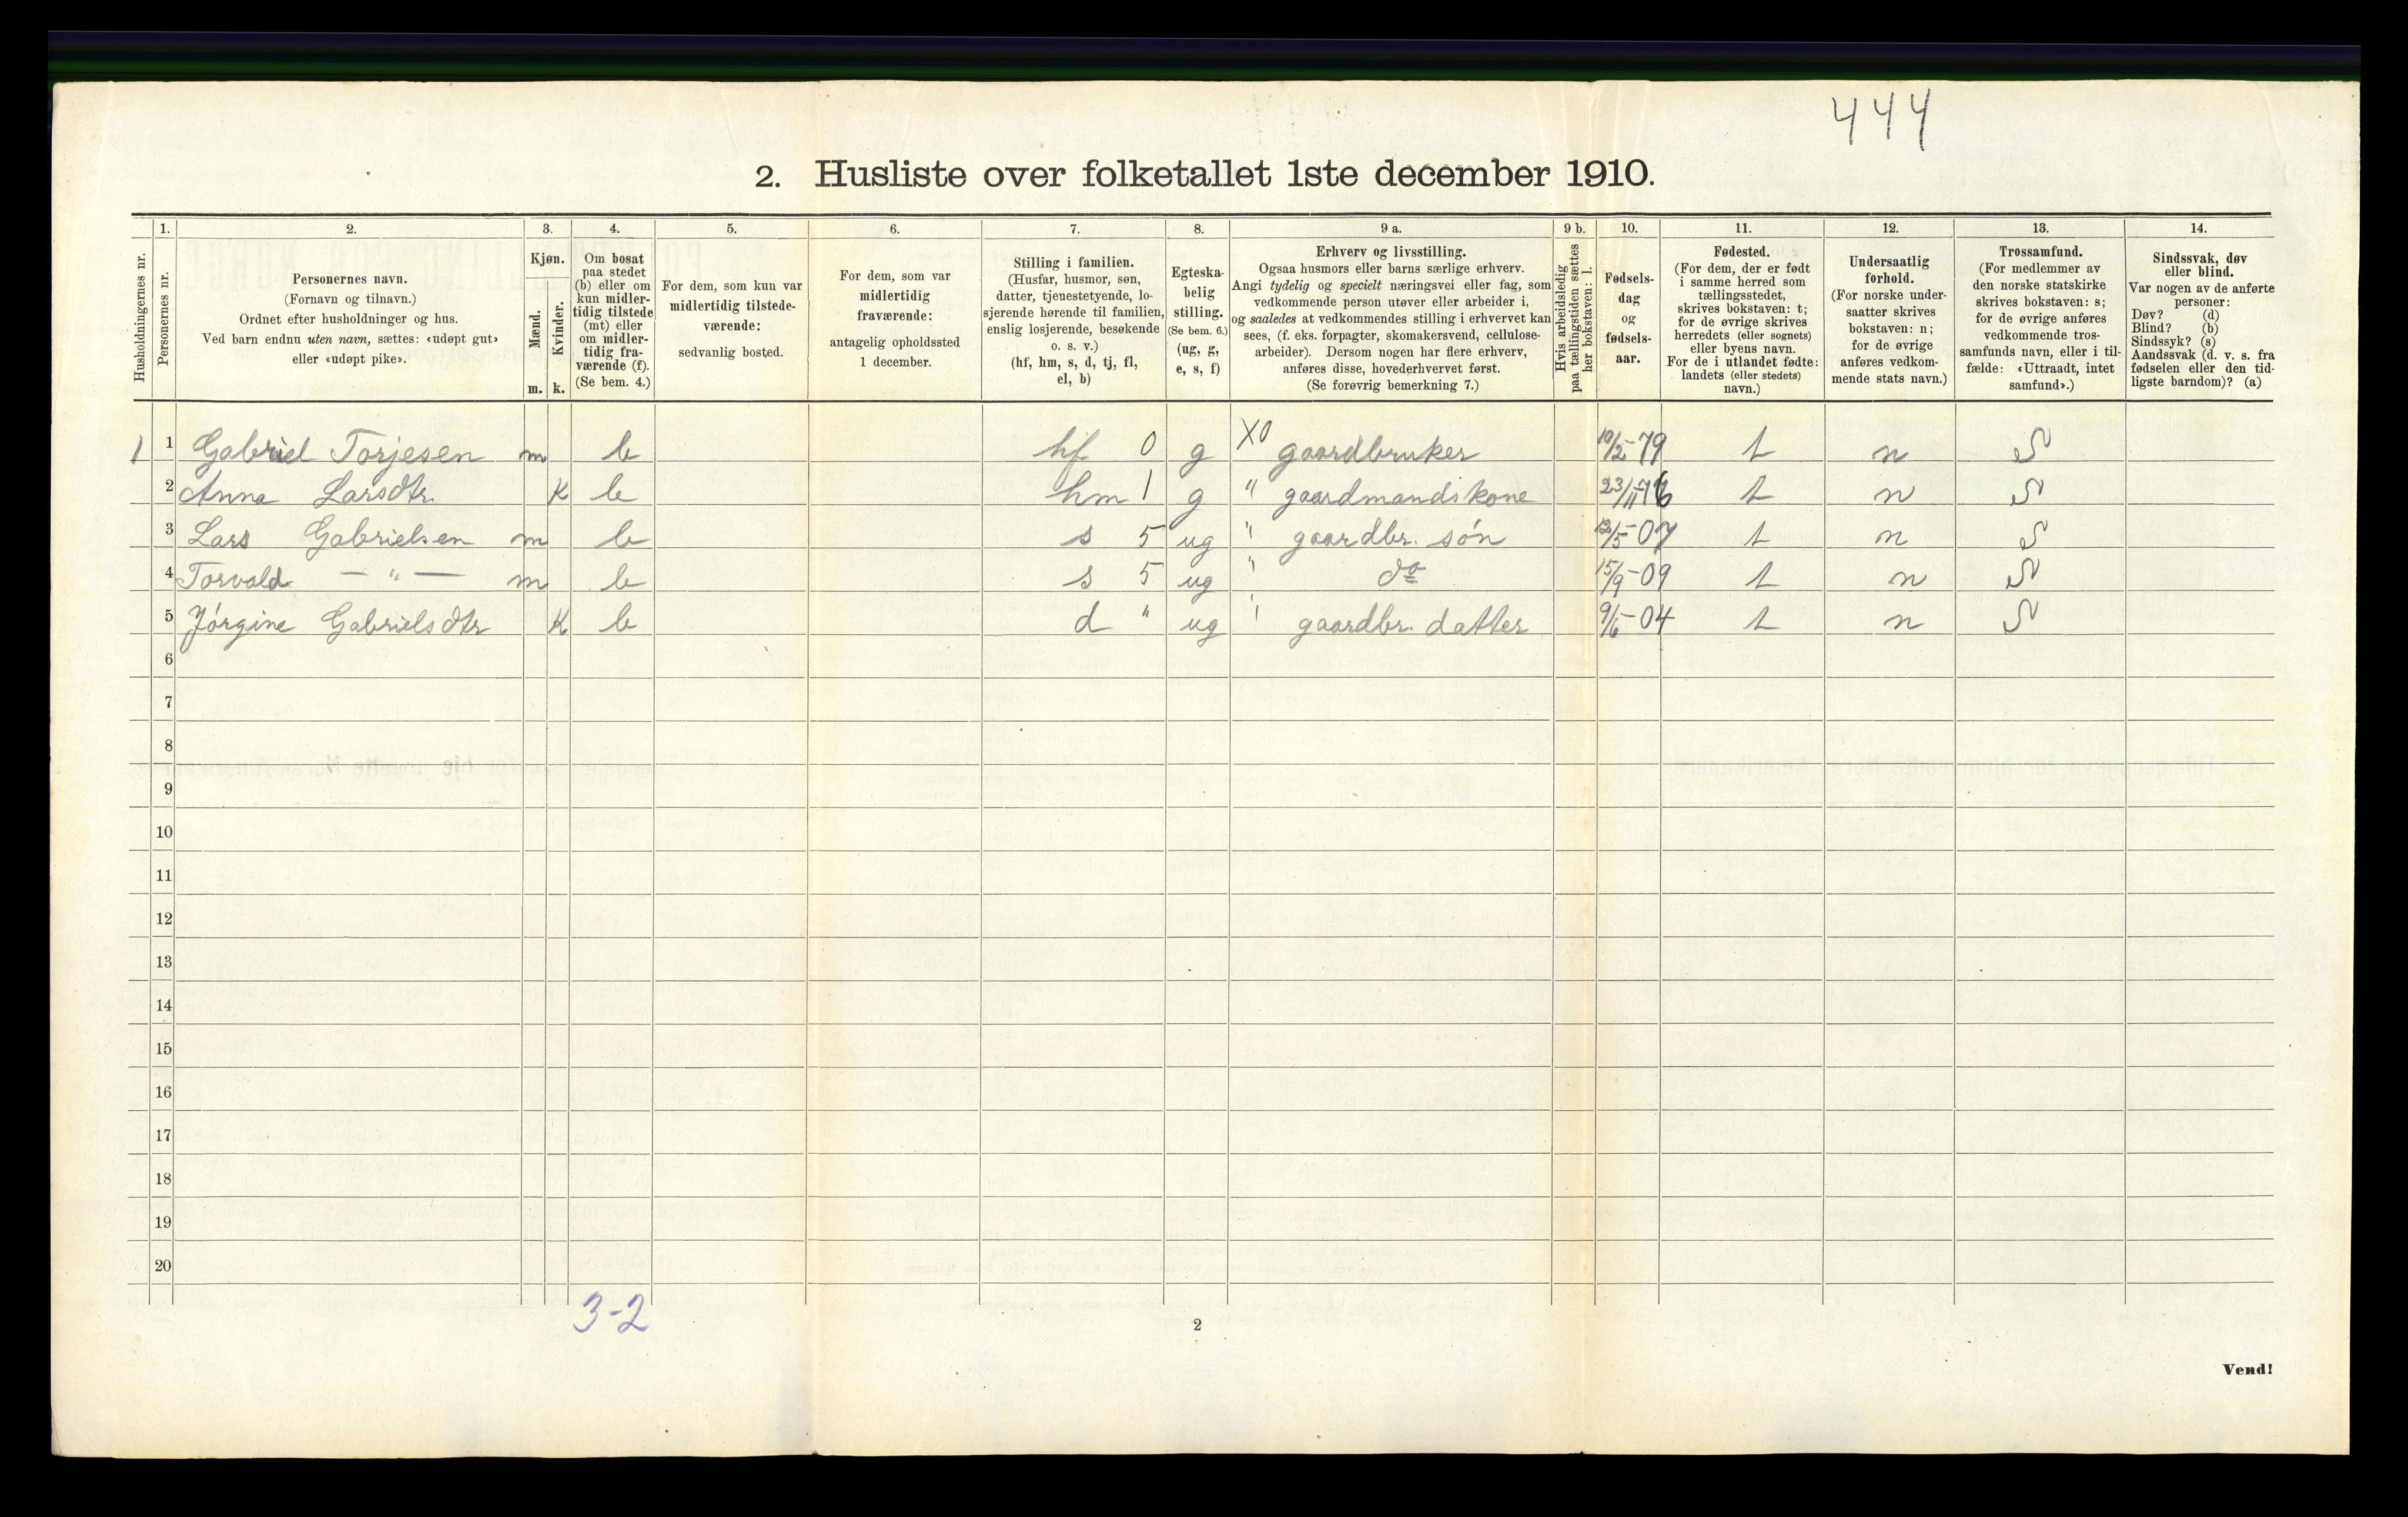 444
2. Husliste over folketallet 1ste december 1910.
Husholdningernes nr.
1.
Personernes nr.
2.
Personernes navn.
(Fornavn og tilnavn.)
Ordnet efter husholdninger og hus.
Ved barn endnu uten navn, sættes: «udøpt gut»
eller «udøpt pike».
3.
Kjøn.
Mænd.
m.
Kvinder.
k.
4.
Om bosat
paa stedet
(b) eller om
kun midler-
tidig tilstede
(mt) eller
om midler-
tidig fra-
værende (f).
(Se bem. 4.)
5.
For dem, som kun var
midlertidig tilstede-
værende:
sedvanlig bosted.
6.
For dem, som var
midlertidig
fraværende:
antagelig opholdssted
1 december.
7.
Stilling i familien.
(Husfar, husmor, søn,
datter, tjenestetyende, lo-
sjerende hørende til familien,
enslig losjerende, besøkende
o. s. v.)
(hf, hm, s, d, tj, fl,
el, b)
8.
Egteska-
belig
stilling.
(Se bem. 6.)
(ug, g,
e, s, f)
9 a.
Erhverv og livsstilling.
Ogsaa husmors eller barns særlige erhverv.
Angi tydelig og specielt næringsvei eller fag, som
vedkommende person utøver eller arbeider i,
og saaledes at vedkommendes stilling i erhvervet kan
sees, (f. eks. forpagter, skomakersvend, cellulose-
arbeider). Dersom nogen har flere erhverv,
anføres disse, hovederhvervet først.
(Se forøvrig bemerkning 7.)
9 b.
Hvis arbeidsledig
paa tællingstiden sættes
her bokstaven: l.
10.
Fødsels-
dag
og
fødsels-
aar.
11.
Fødested.
(For dem, der er født
i samme herred som
tællingsstedet,
skrives bokstaven: t;
for de øvrige skrives
herredets (eller sognets)
eller byens navn.
For de i utlandet fødte:
landets (eller stedets)
navn.)
12.
Undersaatlig
forhold.
(For norske under-
saatter skrives
bokstaven: n;
for de øvrige
anføres vedkom-
mende stats navn.)
13.
Trossamfund.
(For medlemmer av
den norske statskirke
skrives bokstaven: s;
for de øvrige anføres
vedkommende tros-
samfunds navn, eller i til-
fælde: «Uttraadt, intet
samfund».)
14.
Sindssvak, døv
eller blind.
Var nogen av de anførte
personer:
Døv? (d)
Blind? (b)
Sindssyk? (s)
Aandssvak (d. v. s. fra
fødselen eller den tid-
ligste barndom)? (a)
1 1 Gabriel Torjesen m b hf 0 g X0 gaardbruker 10/2-79 t n S
2 Anna Larsdtr. K b hm 1 g " gaardmandskone 23/11-76 t n S
3 Lars Gabrielsen m b s 5 ug " gaardbr. søn 12/5-07 t n S
4 Torvald — " — m b s 5 ug " do 15/9-09 t n S
5 Jørgine Gabrielsdtr K b d " ug " gaardbr. datter 9/6-04 t n S
6
7
8
9
10
11
12
13
14
15
16
17
18
19
20
3-2
2
Vend!